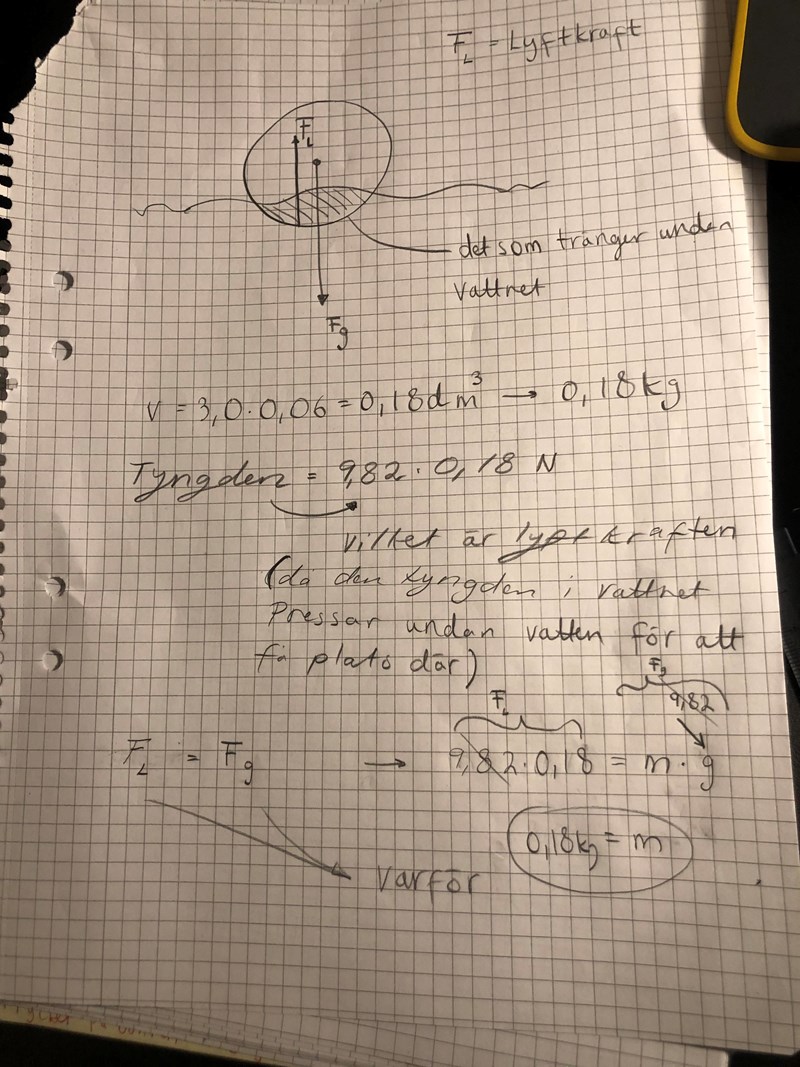 F_L = Lyftkraft
F_L
det som tränger undan
vattnet
F_g
V = 3,0 · 0,06 = 0,18 dm³ → 0,18 kg
Tyngden = 9,82 · 0,18 N
vilket är lyftkraften
(då den tyngden i vattnet
Pressar undan vatten för att
få plats där)
F_g
F_L
9,82
F_L = F_g → 9,82 · 0,18 = m · g
0,18 kg = m
varför